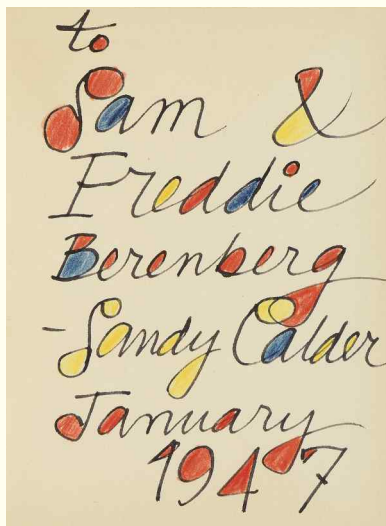 to
Sam &
Freddie
Berenberg
- Sandy Calder
January
1947